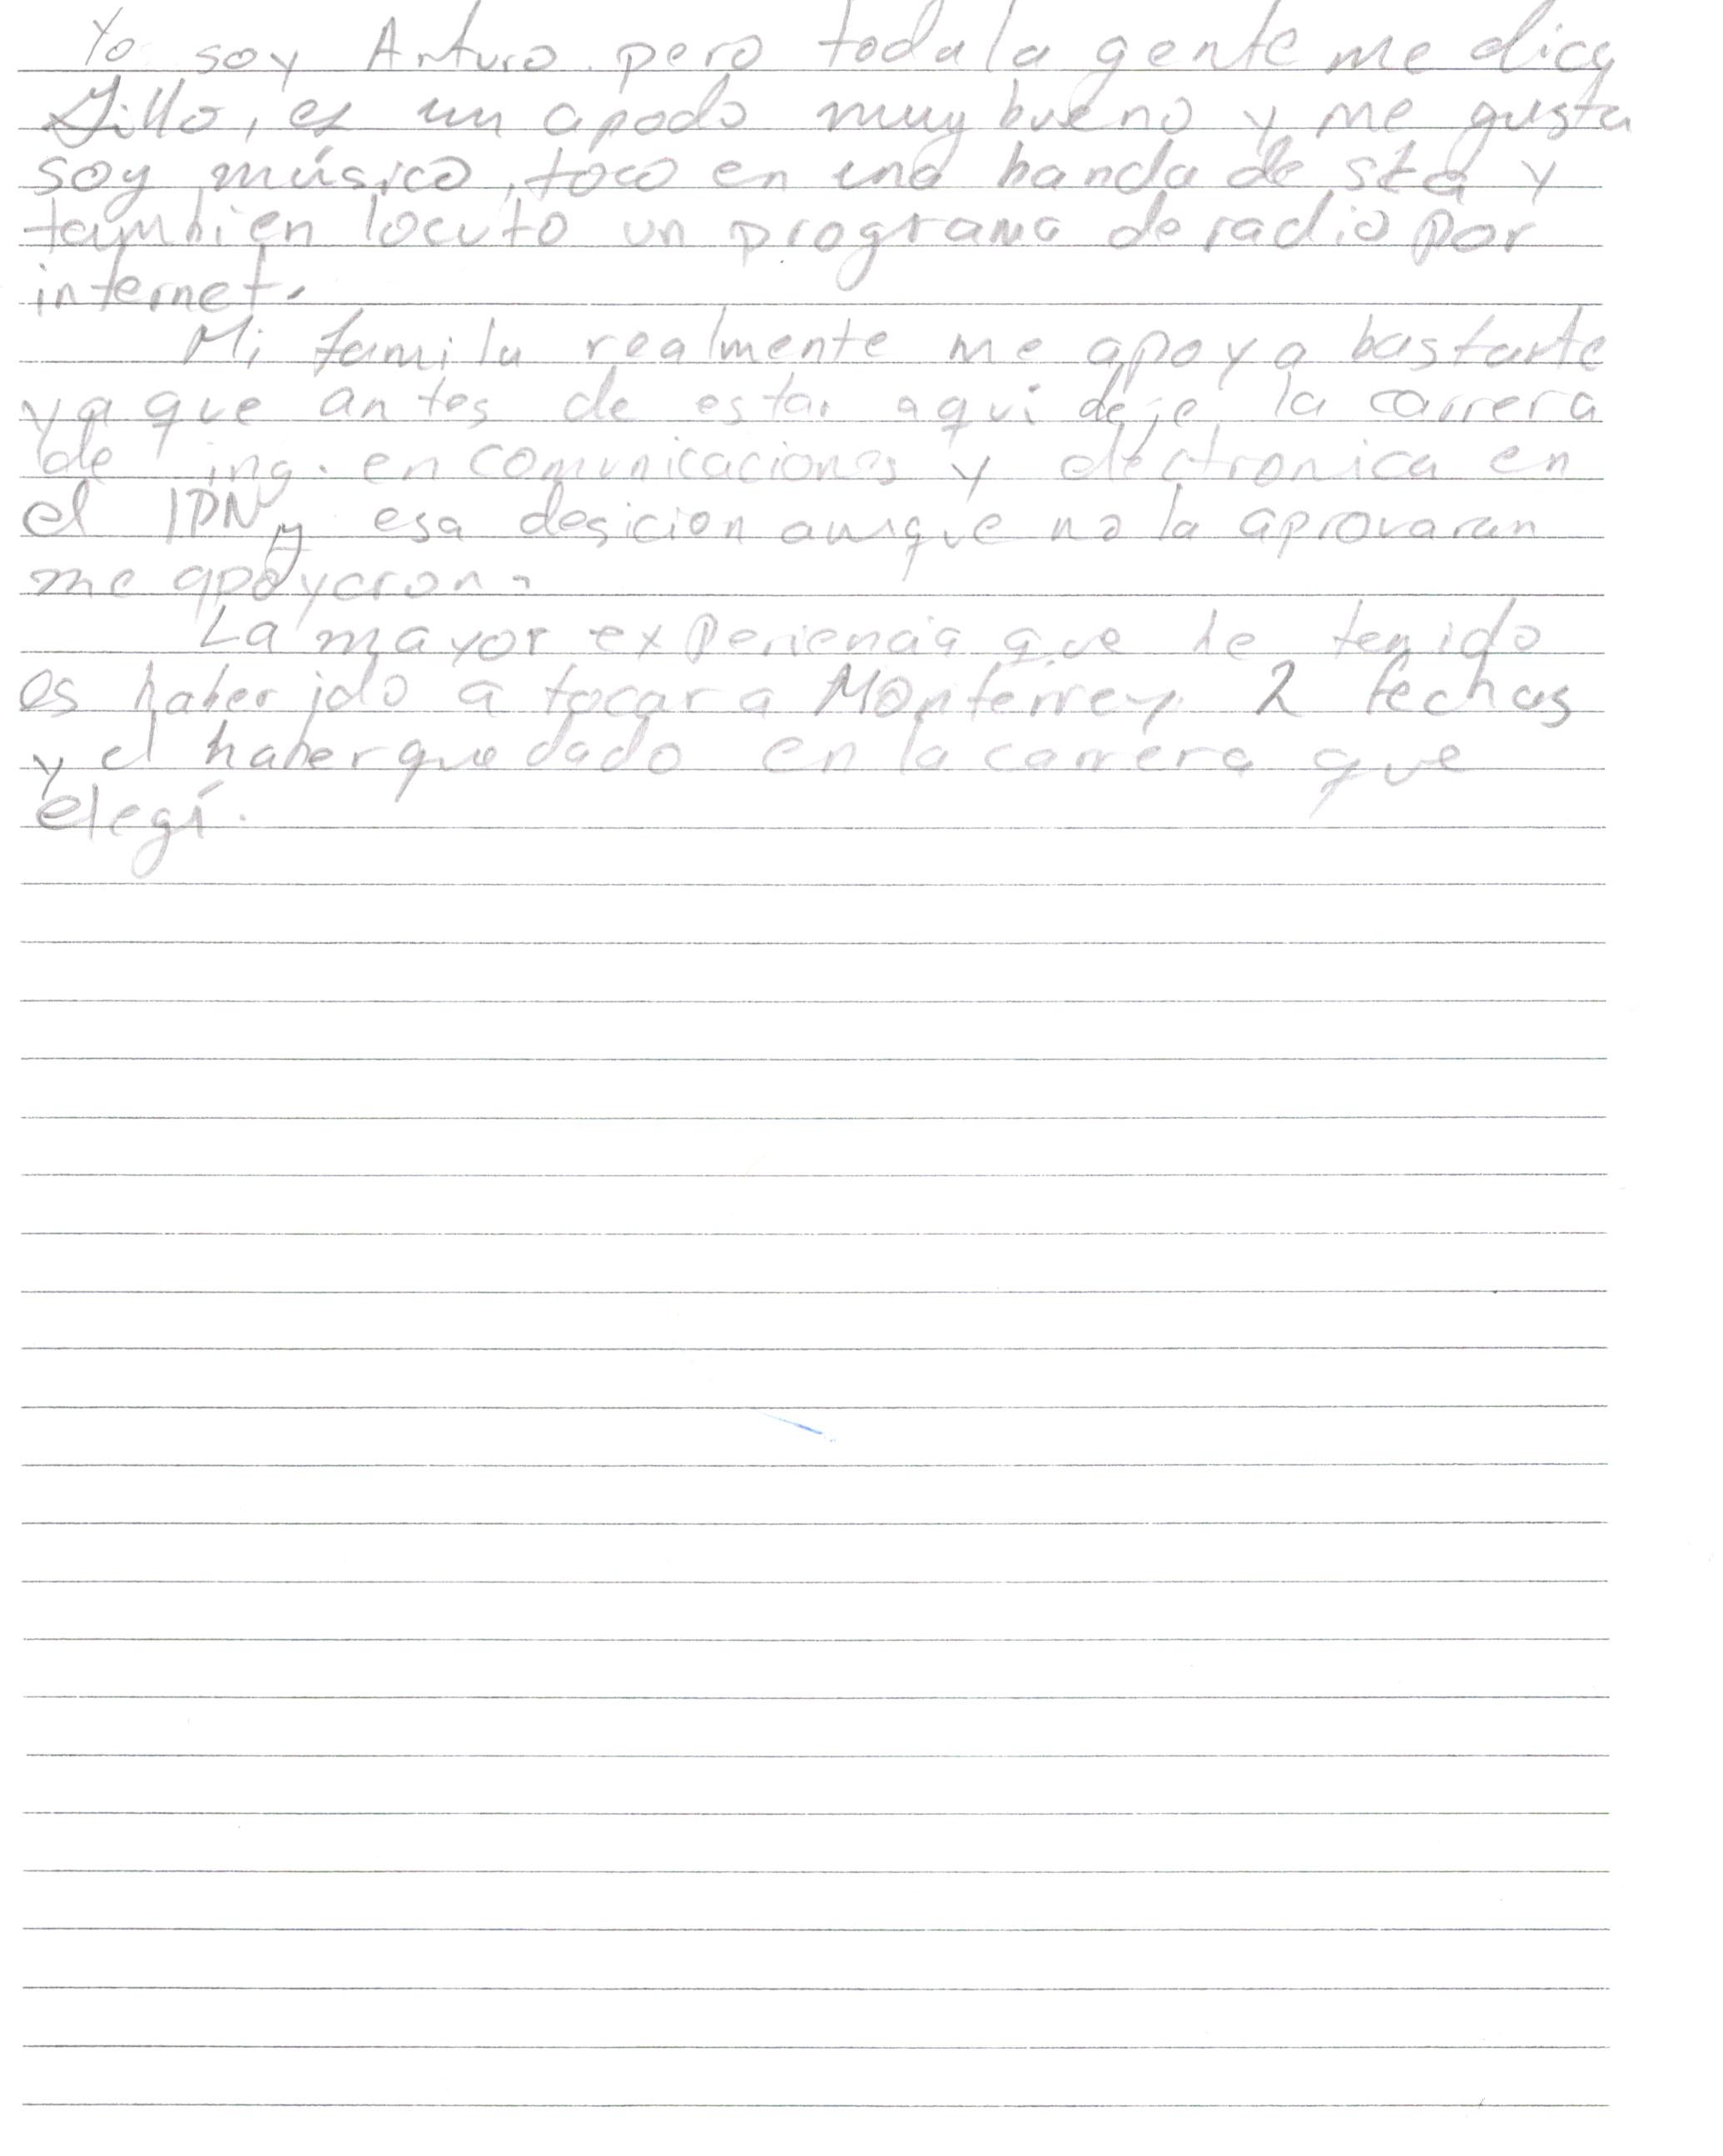 Yo soy Arturo. pero toda la gente me dice
Jillo, es un apodo muy bueno y me gusta
soy músico, toco en una banda de ska y
tambien locuto un programa de radio por
internet.
Mi familia realmente me apoya bastante
ya que antes de estar aqui deje la carrera
de ing. en comunicaciones y electronica en
el IPN y esa desicion aunque no la aprovaran
me apoyaron.
La mayor experiencia que he tenido
es haber ido a tocar a Monterrey. 2 fechas
y el haber quedado en la carrera que
elegí.